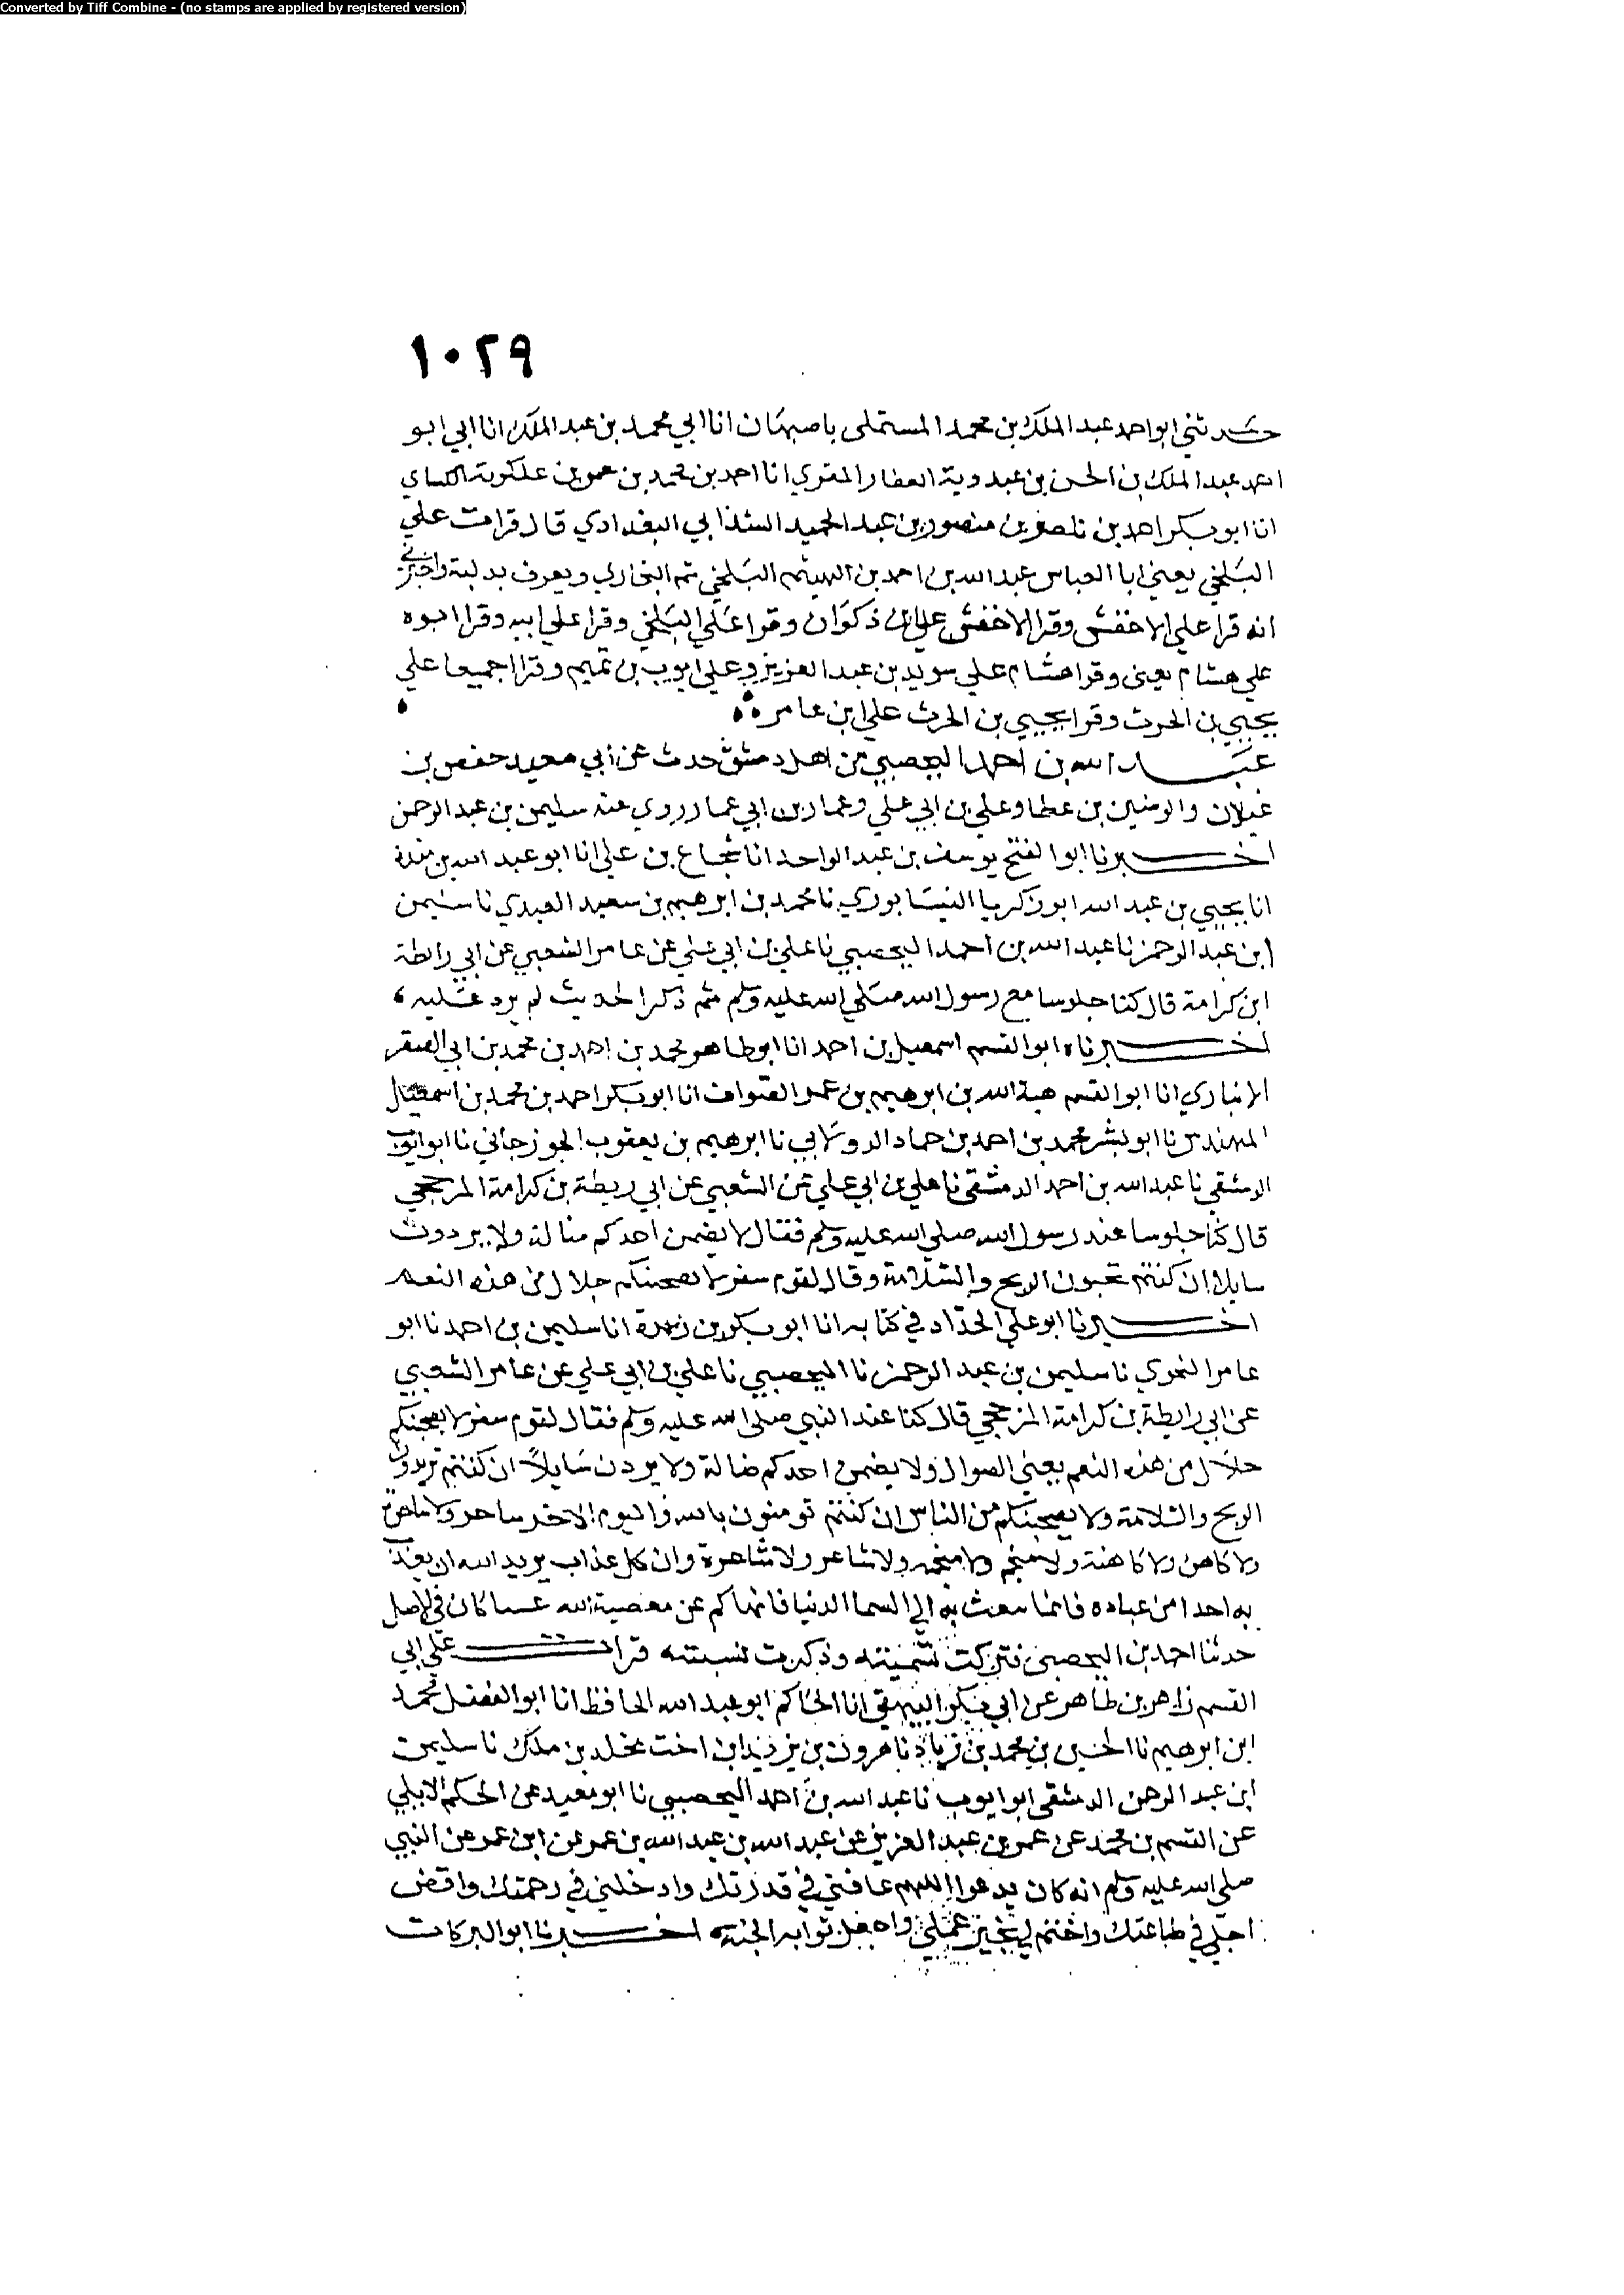 Converted by Tiff Combine - (no stamps are applied by registered version)
١٠٢٩
حدثني ابو احمد عبد الملك بن محمد المستملى باصبهان انا ابي محمد بن عبد الملك انا ابي ابو
احمد عبد الملك بن الحسن بن عبدوية العطار المقري انا احمد بن محمد بن
انا ابو بكر احمد بن نصر بن منصور بن عبد الحميد الشذابي البغدادي قال قرات علي
البلخي يعني ابا العباس عبد الله بن احمد بن الهيثم البلخي ثم البخاري ويعرف بدلبة واخبرني
انه قرا علي الاخفش وقرا الاخفش علي ابن ذكوان وقرا علي البلخي وقرا علي ابيه وقرا ابوه
علي هشام يعني وقرا هشام علي سويد بن عبد العزيز وعلي ايوب بن تميم وقرا اجميعا علي
يحيي بن الحرث وقرا يحيي بن الحرث علي ابن عامره
عبد الله بن احمد اليحصبي من اهل دمشق حدث عن ابي معيد حفص بن
غيلان والوضين بن عطا وعلي بن ابي علي وعمار بن ابي عمار روي عنه سليمن بن عبد الرحمن
اخبرنا ابو الفتح يوسف بن عبد الواحد انا شجاع بن علي انا ابو عبد الله بن مندة
انا يحيي بن عبد الله ابو زكريا النيسابوري نا محمد بن ابرهيم بن سعيد العبدي نا سليمن
ابن عبد الرحمن نا عبد الله بن احمد اليحصبي نا علي بن ابي علي عن عامر الشعبي عن ابي رائطة
ابن كرامة قال كنا جلوسا مع رسول الله صلي الله عليه وسلم ثم ذكر الحديث لم يزد عليه
اخبرناه ابو القسم اسمعيل بن احمد انا ابو طاهر محمد بن احمد بن محمد بن ابي الصقر
الانباري انا ابو القسم هبة الله بن ابرهيم بن عمر الصواف انا ابو بكر احمد بن محمد بن اسمعيل
المهندس نا ابو بشر محمد بن احمد بن حماد الدولابي نا ابرهيم بن يعقوب الجوزجاني نا ابو ايوب
الدمشقي نا عبد الله بن احمد الدمشقي نا علي بن ابي علي عن الشعبي عن ابي ريطة بن كرامة المذحجي
قال كنا جلوسا عند رسول الله صلي الله عليه وسلم فقال لا يضمن احدكم ضالة ولا يردون
سايلا ان كنتم تحبون الربح والسلامة وقال لقوم سفر لا يصحبنكم جلال من هذه النعم
اخبرنا ابو علي الحداد في كتابه انا ابو بكر بن زيدة انا سليمن بن احمد نا ابو
عامر النحوي نا سليمن بن عبد الرحمن نا اليحصبي نا علي بن ابي علي عن عامر الشعبي
عن ابي رايطة بن كرامة المذحجي قال كنا عند النبي صلى الله عليه وسلم فقال لقوم سفر لا يصحبنكم
جلال من هذه النعم يعني الضوال ولا يضمن احدكم ضالة ولا يردن سايلا ان كنتم تريدون
الربح والسلامة ولا يصحبنكم من الناس ان كنتم تومنون بالله واليوم الاخر ساحر ولا ساحرة
ولا كاهن ولا كاهنة ولا منجم ولا منجمة ولا شاعر ولا شاعرة وان كل عذاب يريد الله ان يعذب
به احدا من عباده فانما يبعث به الي السما الدنيا فانهاكم عن معصية الله عشا كان في الاصل
حدثنا احمد بن اليحصبي فتركت تسميته وذكرت نسبته قرات علي ابي
القسم زاهر بن طاهر عن ابي بكر البيهقي انا الحاكم ابو عبد الله الحافظ انا ابو الفضل محمد
ابن ابرهيم نا الحسين بن محمد بن زياد نا هرون بن يزيد ابن اخت مخلد بن ملك نا سليمن
ابن عبد الرحمن الدمشقي ابو ايوب نا عبد الله بن احمد اليحصبي نا ابو معيد عن الحكم الايلي
عن القسم بن محمد عن عمر بن عبد العزيز عن عبد الله بن عبد الله بن عمر عن ابن عمر عن النبي
صلى الله عليه وسلم انه كان يدعوا اللهم عافني في قدرتك وادخلني في رحمتك واقض
اجلي في طاعتك واختم لي بخير عملي واجعل ثوابه الجنة اخبرنا ابو البركات